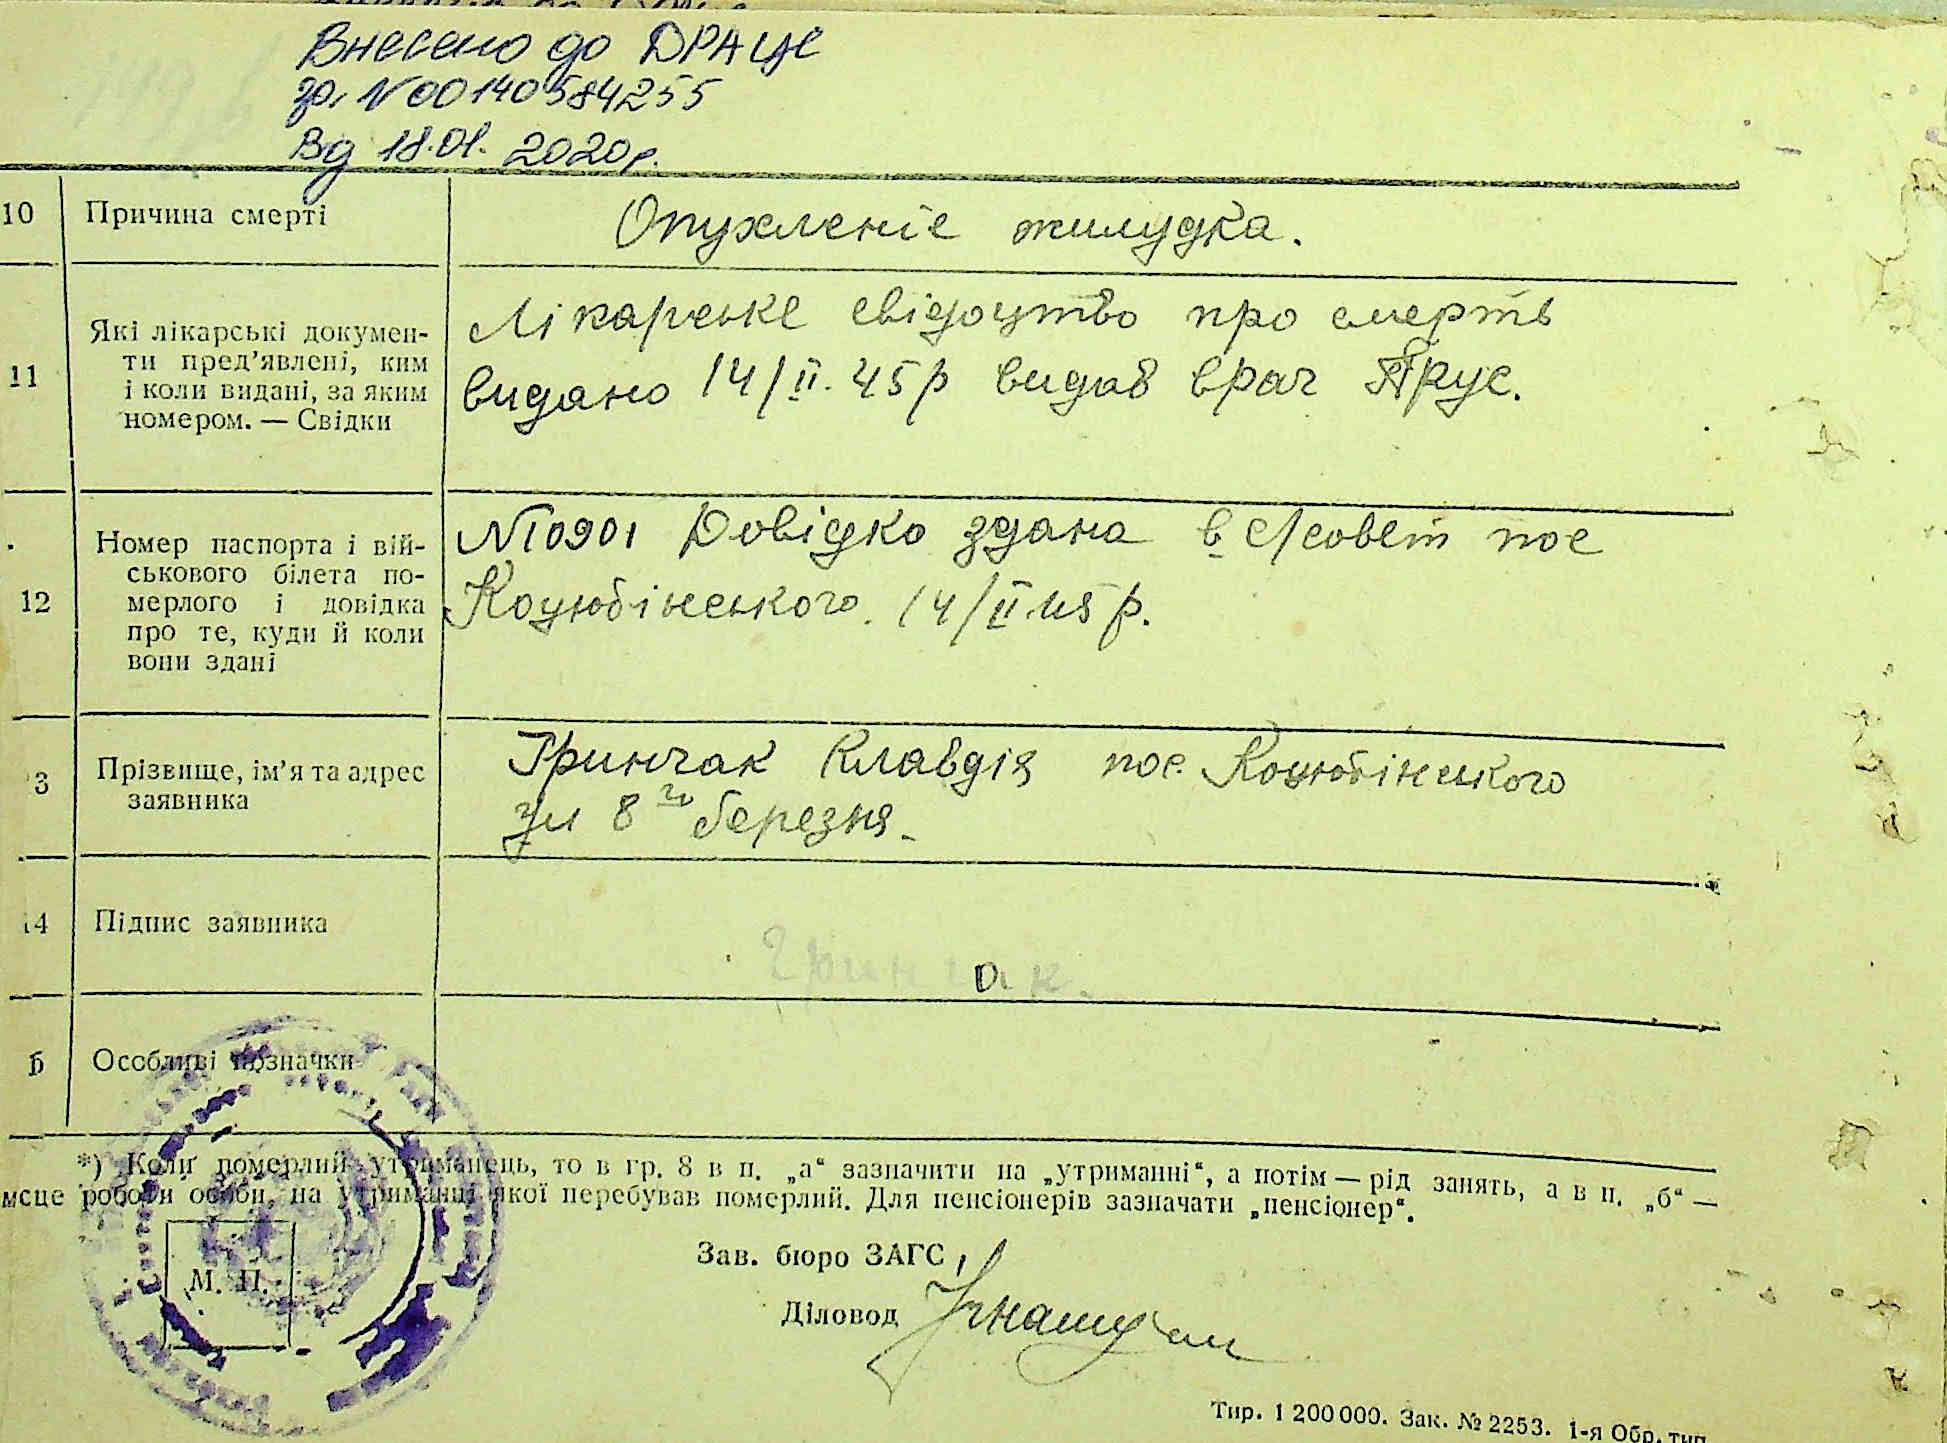 Внесено до ДРАЦС
за №00140584255
від 18.01.2020р.
10 Причина смерті
Опухленіе жилудка.
11 Які лікарські докумен-
ти пред’явлені, ким
і коли видані, за яким
номером. — Свідки
Лікарське свідоцтво про смерть
видано 14/II.45р видав врач Прус.
12 Номер паспорта і вій-
ськового білета по-
мерлого і довідка
про те, куди й коли
вони здані
№10901 Довідка здана в с/совет пос
Коцюбінського. 14/II 45р.
3 Прізвище, ім’я та адрес
заявника
Гринчак Клавдія пос. Коцюбінського
ул 8го березня.
14 Підпис заявника
Гринчак.
Особливі позначки
*) Коли померлий утриманець, то в гр. 8 в п. „а“ зазначити на „утриманні“, а потім — рід занять, а в п. „б“ —
мсце роботи особи, на утриманні якої перебував померлий. Для пенсіонерів зазначати „пенсіонер“.
М. П.
Зав. бюро ЗАГС
Діловод
Тир. 1 200 000. Зак. № 2253. 1-я Обр. тип.